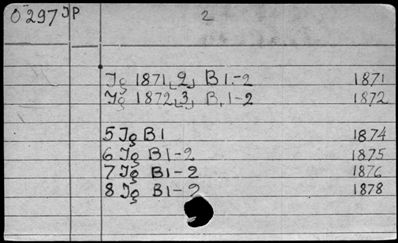 0297 JP 2
Jg 1871,2, B 1.-2 1871
Jg 1872,3, B.1-2 1872
5 Jg B1 1874
6 Jg B1-2 1875
7 Jg B1-2 1876
8 Jg B1-2 1878